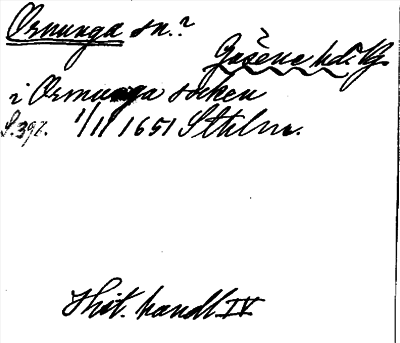 Ornunga sn.?
Gäsene hd. Vg.
i Ormunga socken
S. 397. 1/11 1651 Sthlm.
Hist. handl. IV